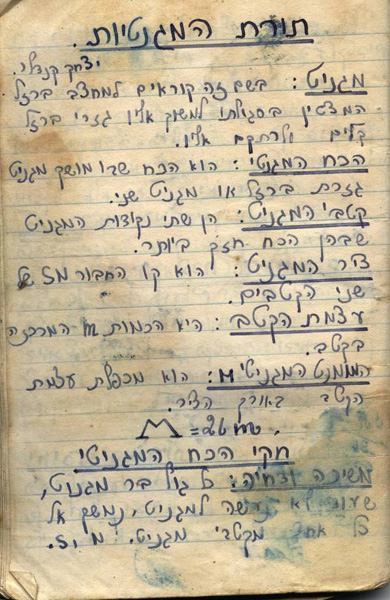 תורת המגנטיות.
יצחק קנדלר.
מגניט: בשם זה קוראים למחצב ברזל
המצטין בסגולתו למשוך אליו גזרי ברזל
קלים ולרתקם אליו.
הכח המגנטי: הוא הכח שבו מושך מגניט
גזרת ברזל או מגניט שני.
קטבי המגניט: הן שתי נקודות המגניט
שבהן הכח חזק ביותר.
ציר המגניט: הוא קו החבור SM של
שני הקטבים.
עצמת הקטב: היא הכמות m המרכזה
בקטב.
המומנט המגניטי M: הוא מכפלת עצמת
הקטב באורך הציר.
M = 2lm.
חקי הכח המגניטי
משיכה ודחיה: כל גוף בר מגנוט,
שעוד לא נעשה למגניט, נמשך אל
כל אחד מקטבי מגניט.